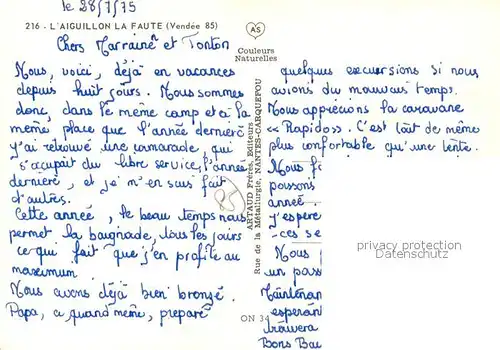 le 28/7/75
216 - L'AIGUILLON LA FAUTE (Vendée 85)
AS
Couleurs
Naturelles
Chers Marraine et Tonton
Nous, voici, déjà en vacances
depuis huit jours. Nous sommes
donc, dans le même camp et à la
même place que l'année dernière
j'ai retrouvé une camarade, qui
s'occupait du libre service, l'année
dernière, et je m'en suis fait
d'autres.
Cette année, le beau temps nous
permet la baignade, tous les jours
ce qui fait que j'en profite au
maximum
Nous avons déjà bien bronzé.
Papa, a quand même, préparé
85
ARTAUD Frères, Editeurs
Rue de la Métallurgie, NANTES-CARQUEFOU
ON 34
quelques excursions si nous
avions du mauvais temps.
Nous apprécions la caravane
"Rapido". C'est tout de même
plus confortable qu'une tente.
Nous f
possons
année
J'espère
ces se
Nous
un pass
Maintenan
espéran
trouvera
Bons Bai
privacy protection
DELCAMPE.NET